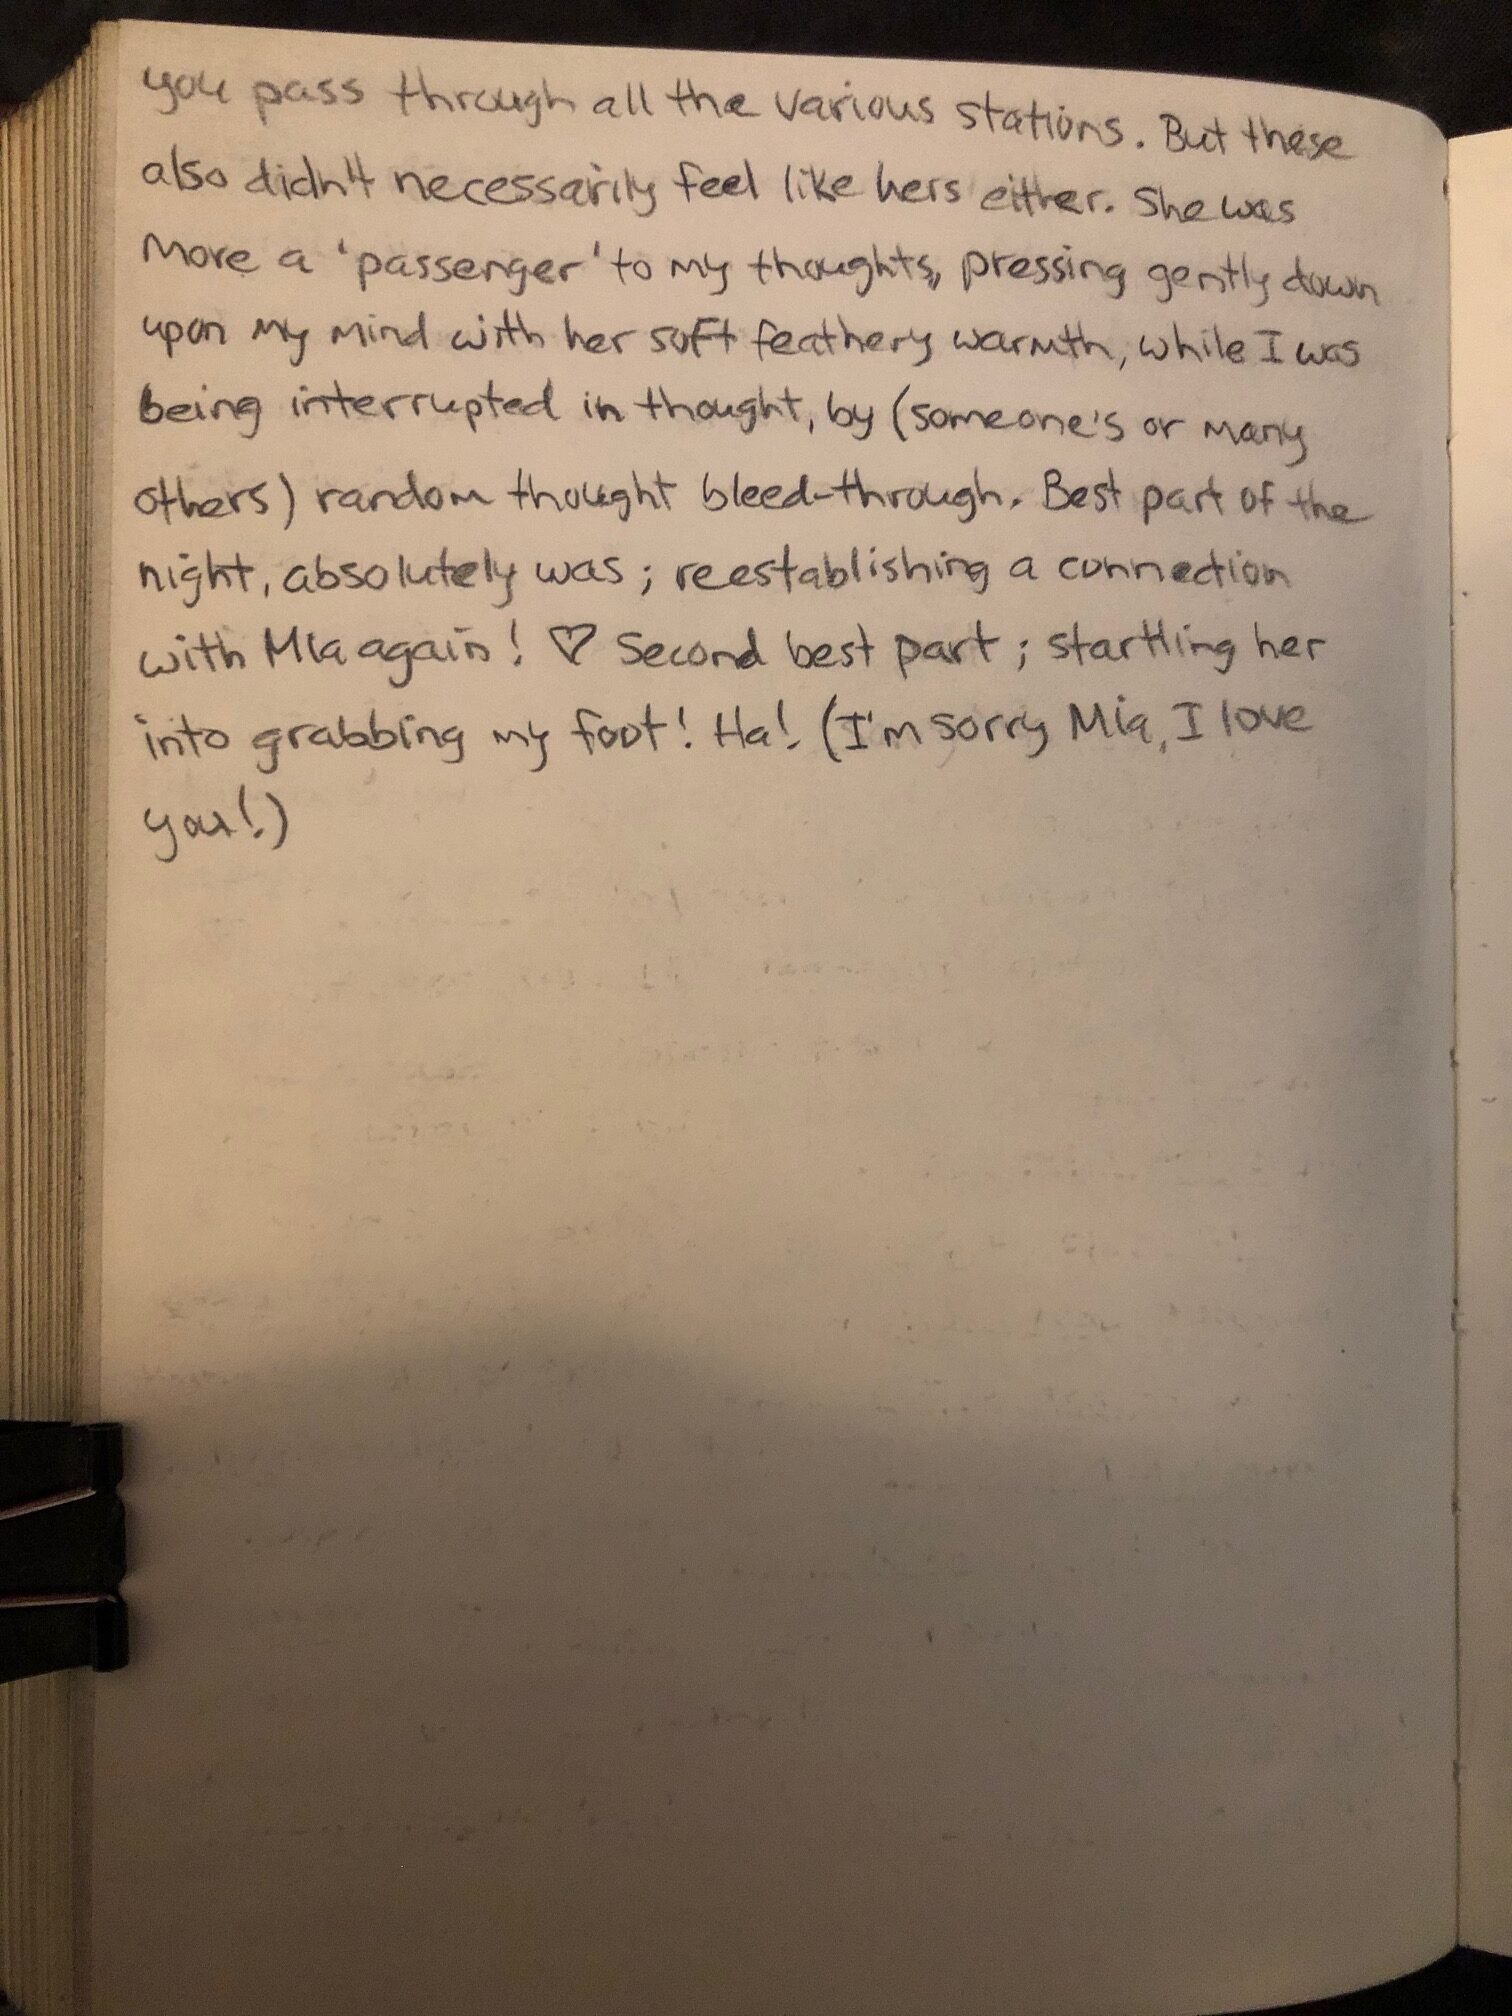 you pass through all the various stations. But these
also didn't necessarily feel like hers either. She was
More a 'passenger' to my thoughts, pressing gently down
upon my mind with her soft feathery warmth, while I was
being interrupted in thought, by (someone's or many
others) random thought bleed-through. Best part of the
night, absolutely was; reestablishing a connection
with Mia again! ♡ Second best part; startling her
into grabbing my foot! Ha! (I'm sorry Mia, I love
you!)